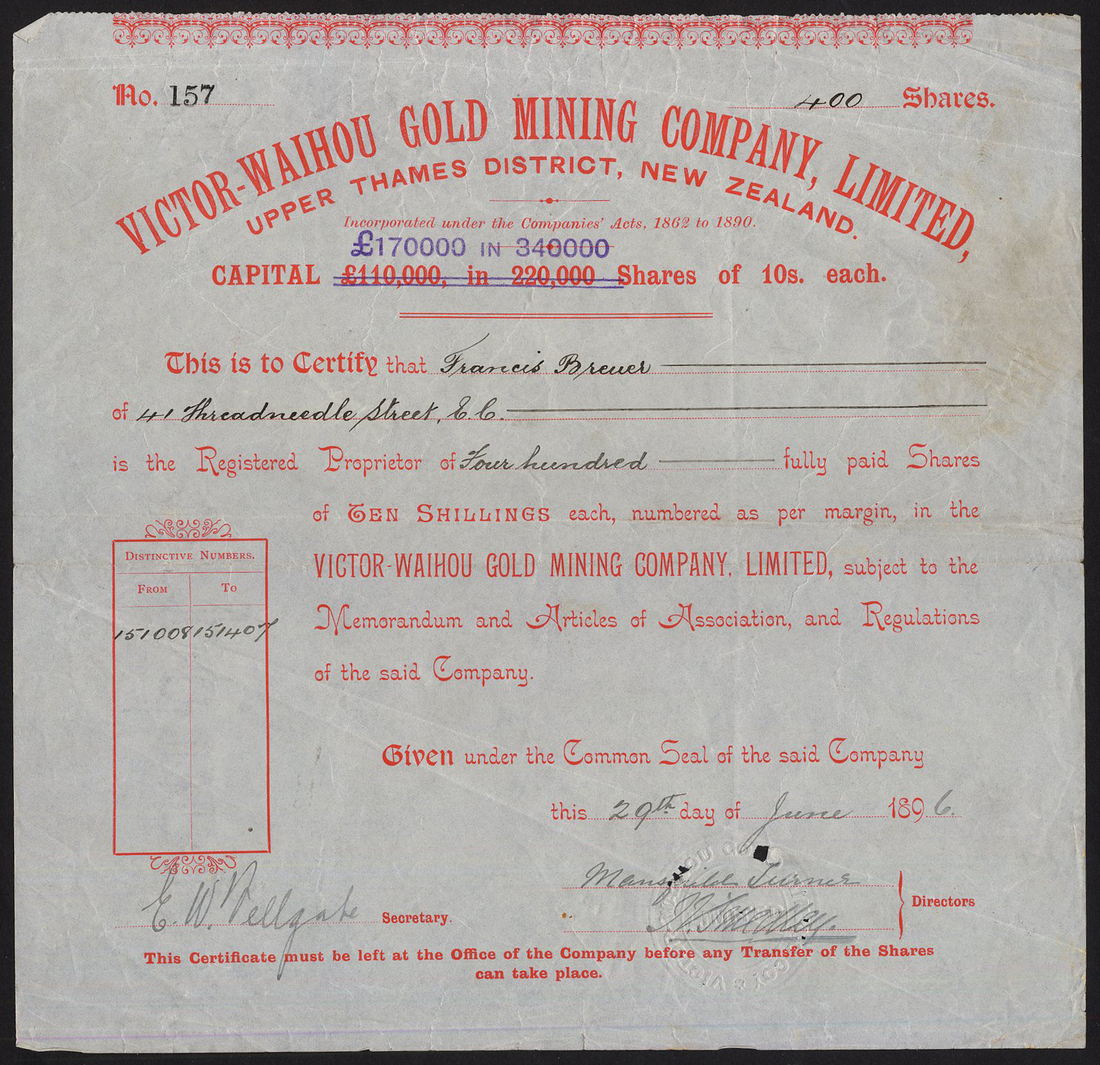 No. 157
400 Shares.
VICTOR-WAIHOU GOLD MINING COMPANY, LIMITED,
UPPER THAMES DISTRICT, NEW ZEALAND.
Incorporated under the Companies' Acts, 1862 to 1890.
£170000 IN 340000
CAPITAL £110,000, in 220,000 Shares of 10s. each.
This is to Certify that Francis Breuer
of 41 Threadneedle Street, E.C.
is the Registered Proprietor of Four hundred fully paid Shares
of TEN SHILLINGS each, numbered as per margin, in the
VICTOR-WAIHOU GOLD MINING COMPANY. LIMITED, subject to the
Memorandum and Articles of Association, and Regulations
of the said Company.
DISTINCTIVE NUMBERS.
FROM TO
151008 151407
Given under the Common Seal of the said Company
this 29th day of June 1896.
Turner
Directors
E. W. Secretary.
This Certificate must be left at the Office of the Company before any Transfer of the Shares
can take place.